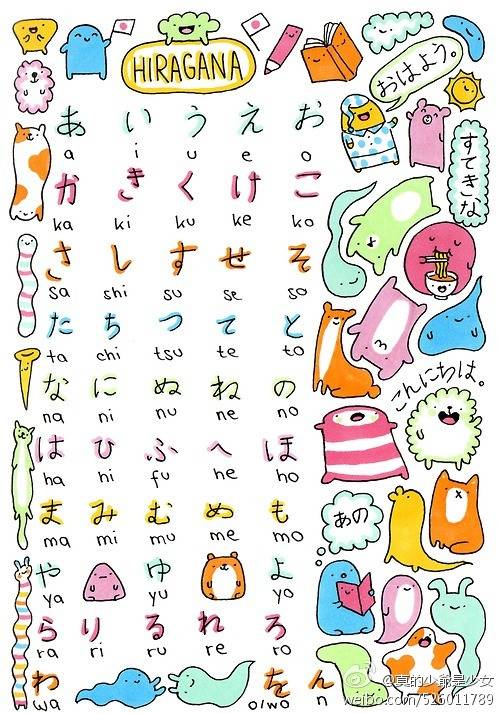 HIRAGANA
おはよう。
すてきな
あ い う え お
a i u e o
か き く け こ
ka ki ku ke ko
さ し す せ そ
sa shi su se so
た ち つ て と
ta chi tsu te to
な に ぬ ね の
na ni nu ne no
こんにちは。
は ひ ふ へ ほ
ha hi fu he ho
ま み む め も
ma mi mu me mo
あの
や ゆ よ
ya yu yo
ら り る れ ろ
ra ri ru re ro
わ を ん
wa o/wo n
@真的少爺是少女
weibo.com/526011789